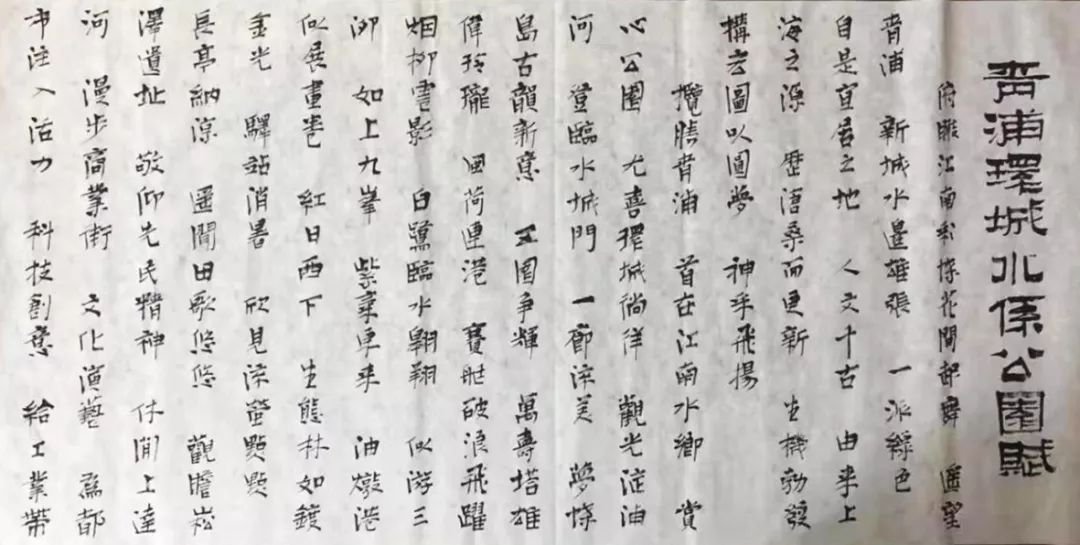 青浦環城水係公園賦
俯瞰江南彩蝶花間起舞 遥望
青浦 新城水邊雄張 一派綠色
自是宜居之地 人文千古 由来上
海之源 歷滄桑而更新 生機勃發
構宏圖以圓夢 神乎飛揚
攬勝青浦 首在江南水鄉 賞
心公園 尤喜環城徜徉 觀光淀浦
河 登臨水城門 一廊淙美 夢蝶
島古韻新意 五園争輝 萬壽塔雄
偉玲瓏 風荷連港 賽艇破浪飛躍
烟柳雲影 白鷺臨水翱翔 似游三
泖 如上九峯 紫氣東来 油墩港
似展畫卷 紅日西下 生態林如鍍
金光 驛站消暑 欣見流螢點點
長亭納涼 遥聞田歌悠悠 觀瞻崧
澤遺址 敬仰先民精神 休閒上達
河 漫步商業街 文化演藝 為都
市注入活力 科技創意 給工業帶